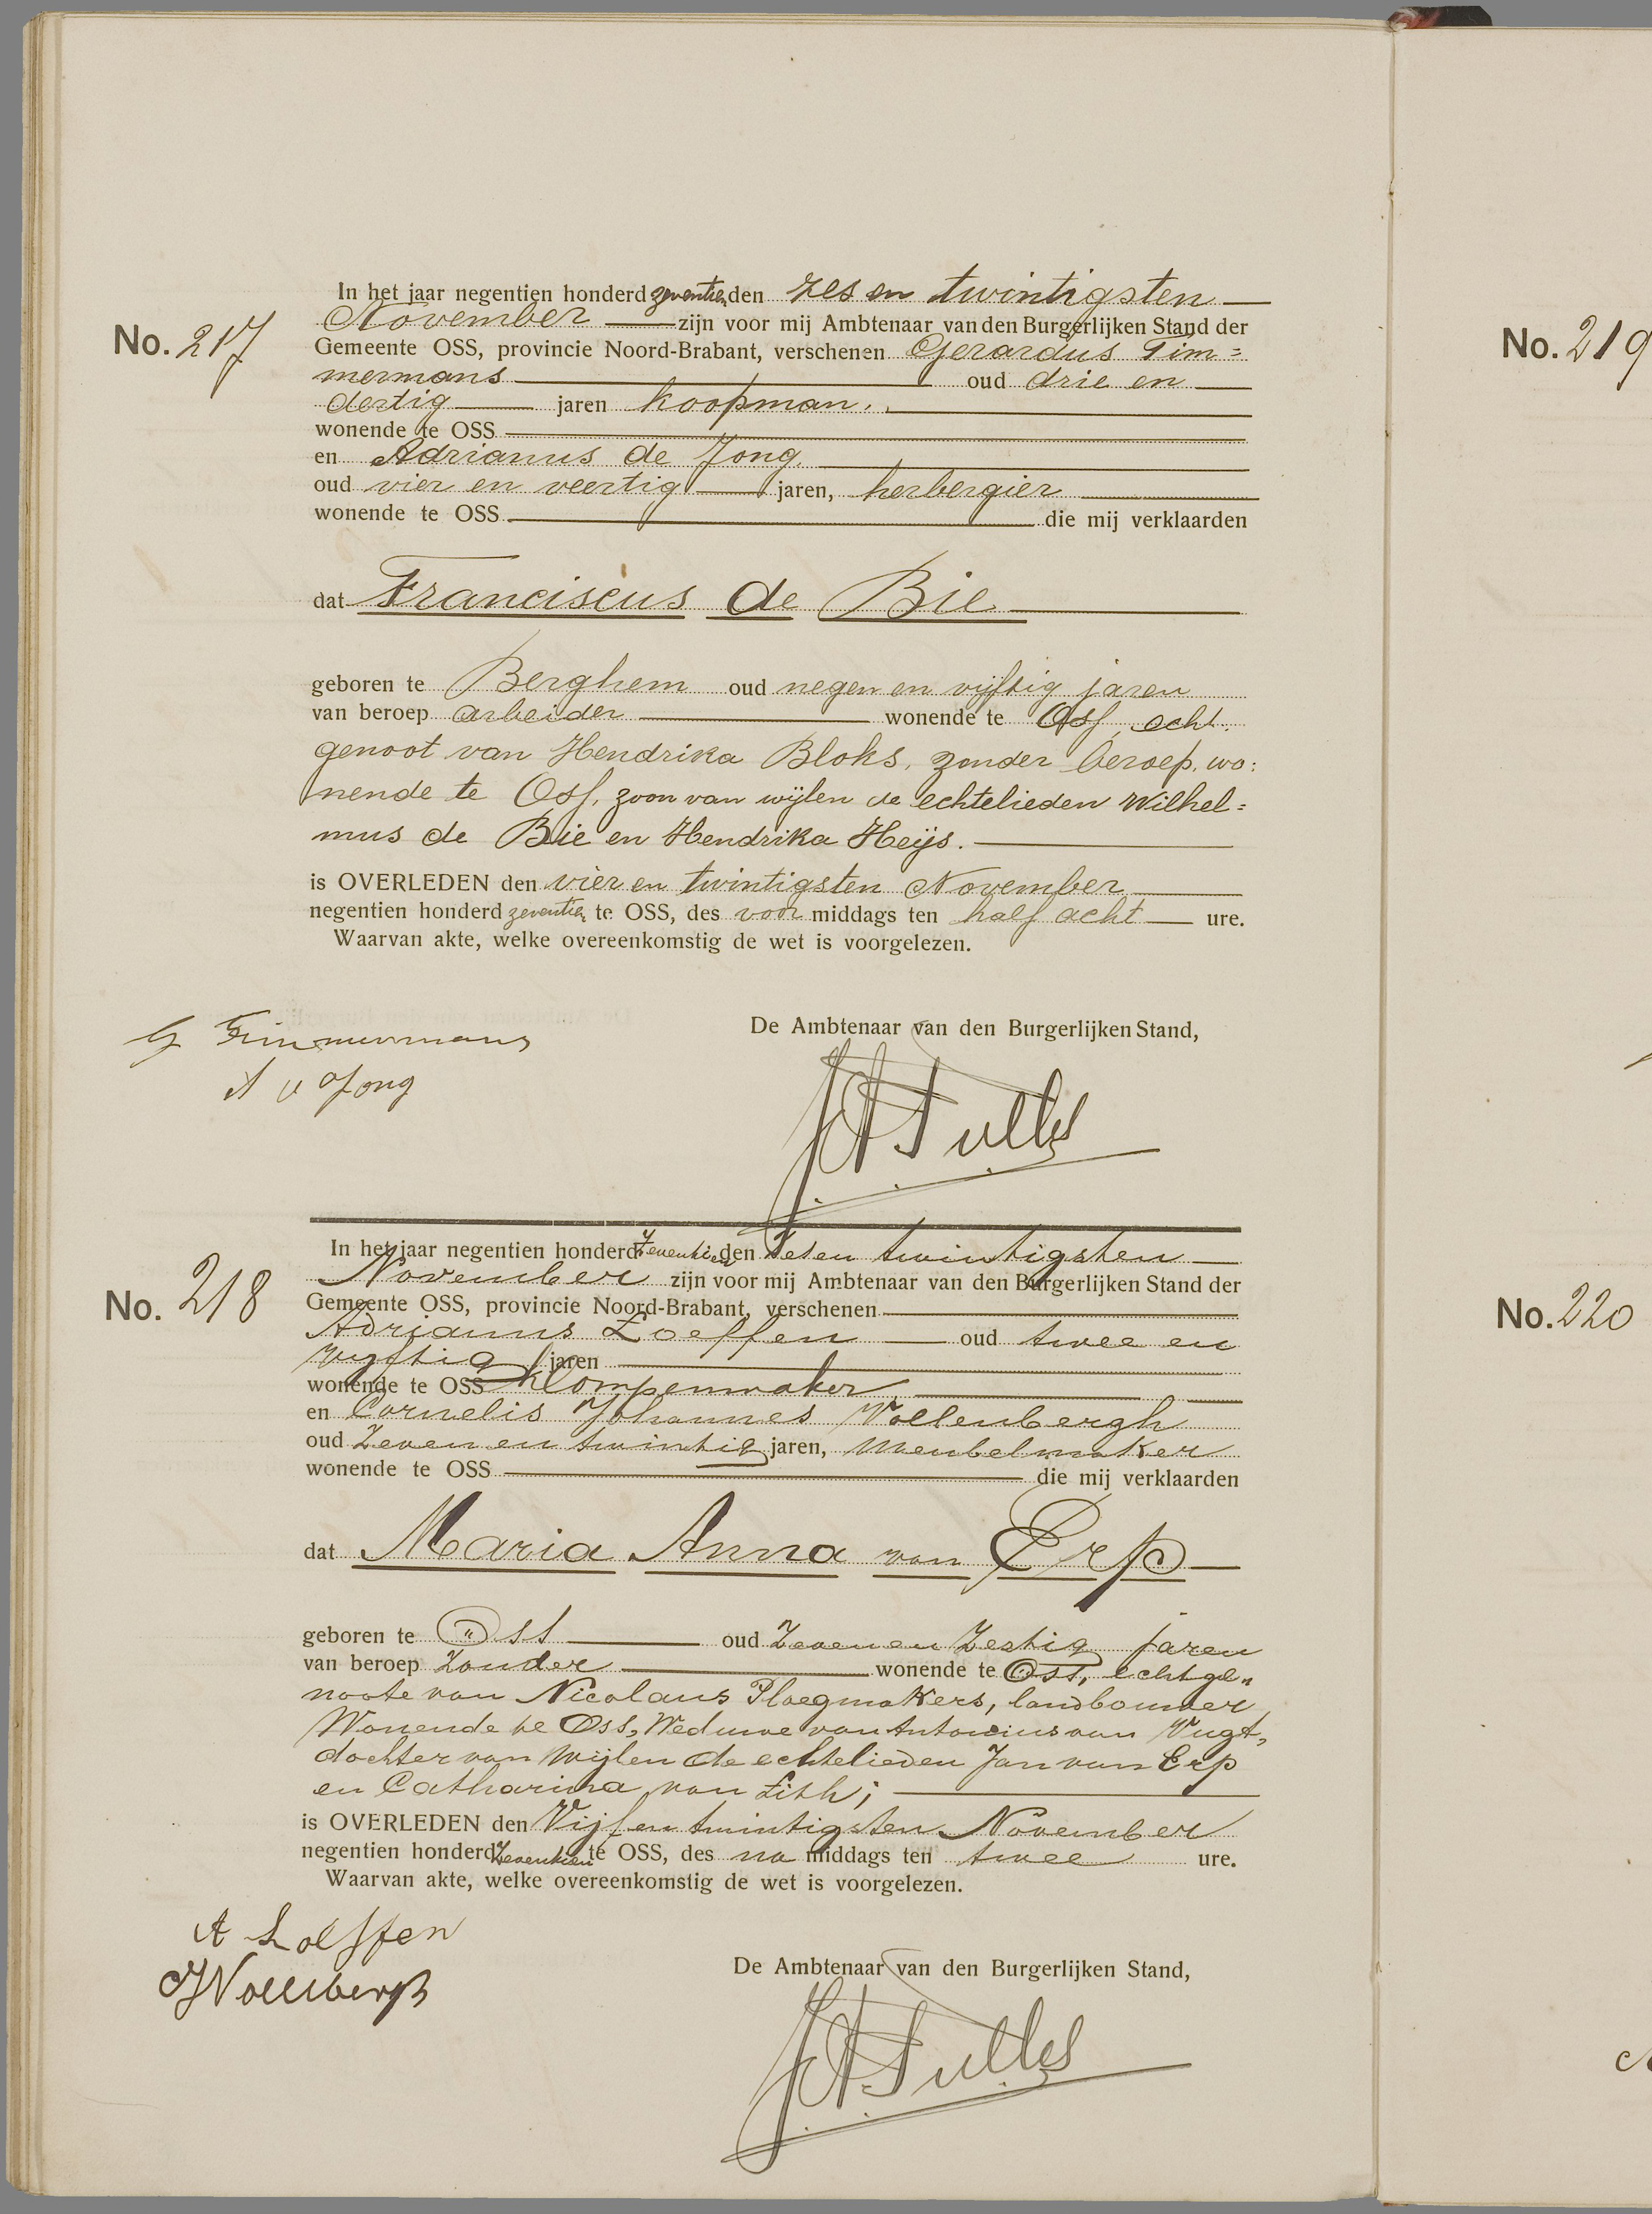 In het jaar negentien honderd zeventien den zes en twintigsten
November zijn voor mij Ambtenaar van den Burgerlijken Stand der
No. 217
Gemeente OSS, provincie Noord-Brabant, verschenen Gerardus Tim=
mermans oud drie en
dertig jaren koopman.
wonende te OSS
en Adrianus de Jong
oud vier en veertig jaren, herbergier
wonende te OSS die mij verklaarden
dat Franciscus de Bie
geboren te Berghem oud negen en vijftig jaren
van beroep arbeider wonende te Oss, echt.
genoot van Hendrika Bloks, zonder beroep, wo:
nende te Oss, zoon van wijlen de echtelieden Wilhel=
mus de Bie en Hendrika Heijs.
is OVERLEDEN den vier en twintigsten November
negentien honderd zeventien te OSS, des voor middags ten half acht ure.
Waarvan akte, welke overeenkomstig de wet is voorgelezen.
De Ambtenaar van den Burgerlijken Stand,
G Timmermans
A d Jong
In het jaar negentien honderd Zeventien den Zes en twintigsten
November zijn voor mij Ambtenaar van den Burgerlijken Stand der
No. 218
Gemeente OSS, provincie Noord-Brabant, verschenen
Adrianus Loeffen oud twee en
vijftig jaren
wonende te OSS Klompenmaker,
en Cornelis Johannes Wollenbergh
oud Zeven en twintig jaren, Meubelmaker
wonende te OSS die mij verklaarden
dat Maria Anna van Erp
geboren te Oss oud Zeven en Zestig jaren
van beroep Zonder wonende te Oss, echtge„
noote van Nicolaus Ploegmakers, landbouwer
Wonende te Oss, Weduwe van Antonius van Vugt,
dochter van Wijlen de echtelieden Jan van Erp
en Catharina van Lith;
is OVERLEDEN den Vijf en twintigsten November
negentien honderd Zeventien te OSS, des na middags ten twee ure.
Waarvan akte, welke overeenkomstig de wet is voorgelezen.
A Loeffen
De Ambtenaar van den Burgerlijken Stand,
No. 219
No. 220